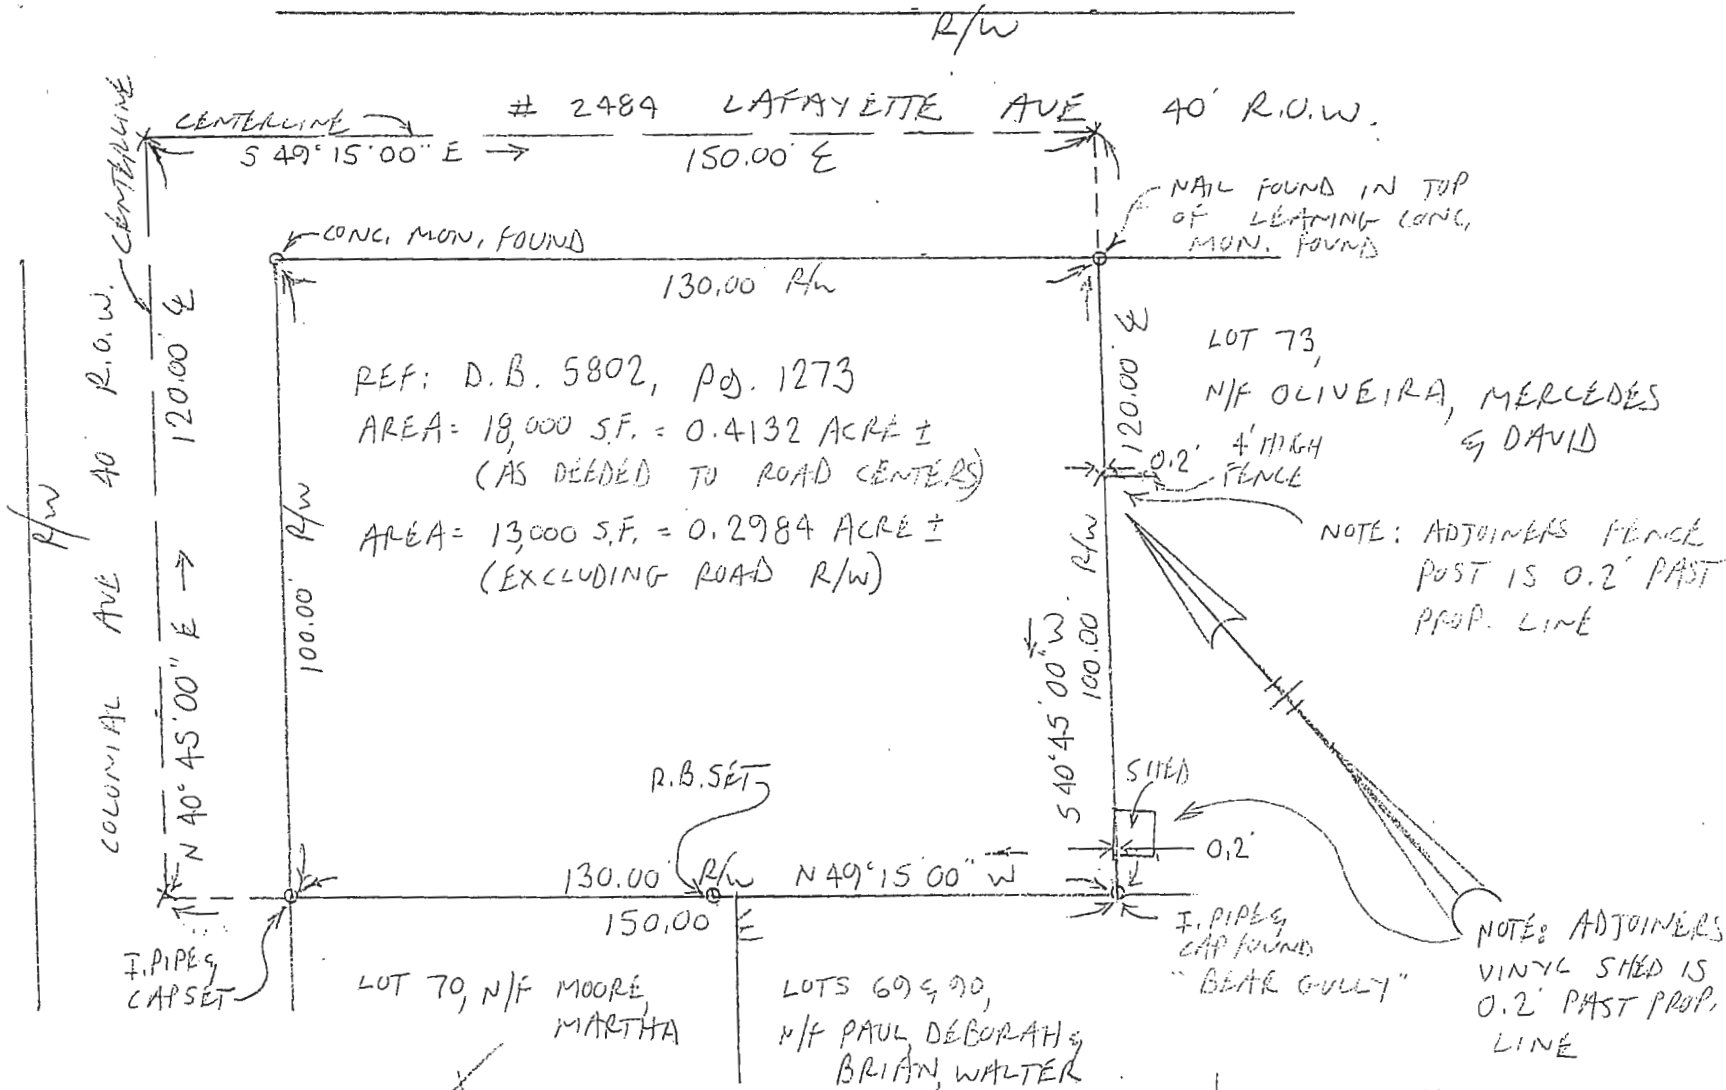 R/W
# 2484 LAFAYETTE AVE 40' R.O.W.
CENTERLINE
S 49°15'00" E →
150.00' ℄
CENTERLINE
NAIL FOUND IN TOP
OF LEANING CONC,
MON. FOUND
CONC. MON. FOUND
130.00' R/W
COLONIAL AVE 40' R.O.W.
R/W
N 40° 45' 00" E → 120.00' ℄
100.00' R/W
REF: D.B. 5802, pg. 1273
AREA = 18,000 S.F. = 0.4132 ACRE ±
(AS DEEDED TO ROAD CENTERS)
AREA = 13,000 S.F. = 0.2984 ACRE ±
(EXCLUDING ROAD R/W)
120.00' ℄
LOT 73,
N/F OLIVEIRA, MERCEDES
& DAVID
0.2'
4' HIGH
FENCE
NOTE: ADJOINERS FENCE
POST IS 0.2' PAST
PROP. LINE
S 40°45'00" W
100.00' R/W
SHED
0.2'
R.B. SET
130.00' R/W N 49°15'00" W
150.00' ℄
I. PIPE &
CAP SET
I. PIPE &
CAP FOUND
"BEAR GULLY"
NOTE: ADJOINERS
VINYL SHED IS
0.2' PAST PROP.
LINE
LOT 70, N/F MOORE,
MARTHA
LOTS 69 & 90,
N/F PAUL, DEBORAH &
BRIAN, WALTER